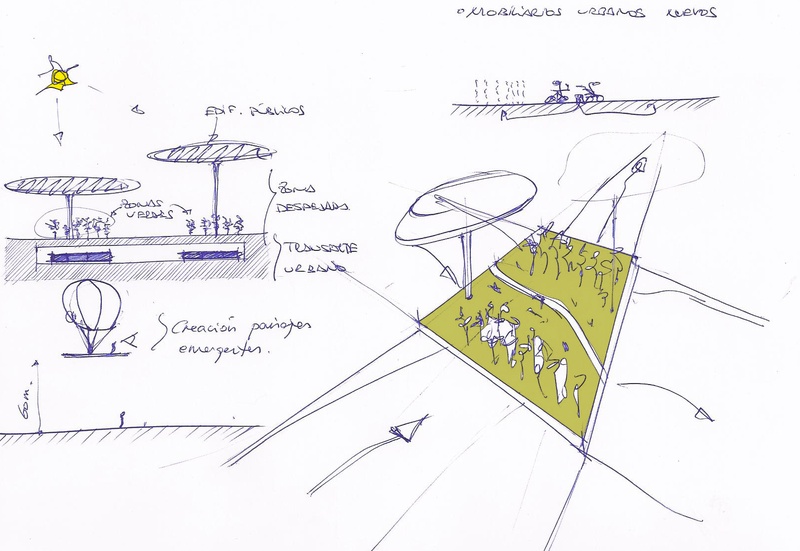 MOBILIARIOS URBANOS NUEVOS
EDIF. PÚBLICOS
ZONAS
VERDES
ZONA
DESPEJADA
TRANSPORTE
URBANO
Creación paisajes
emergentes.
60m.